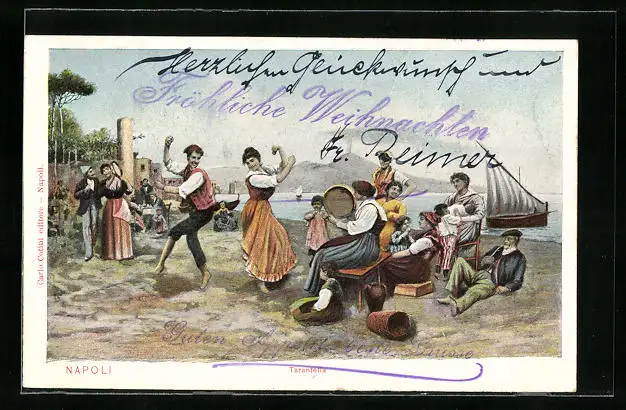 Herzlichen Glückwunsch und
Fröhliche Weihnachten
Fr. Reimer
Carlo Cotini editore - Napoli.
Guten
NAPOLI
Tarantella